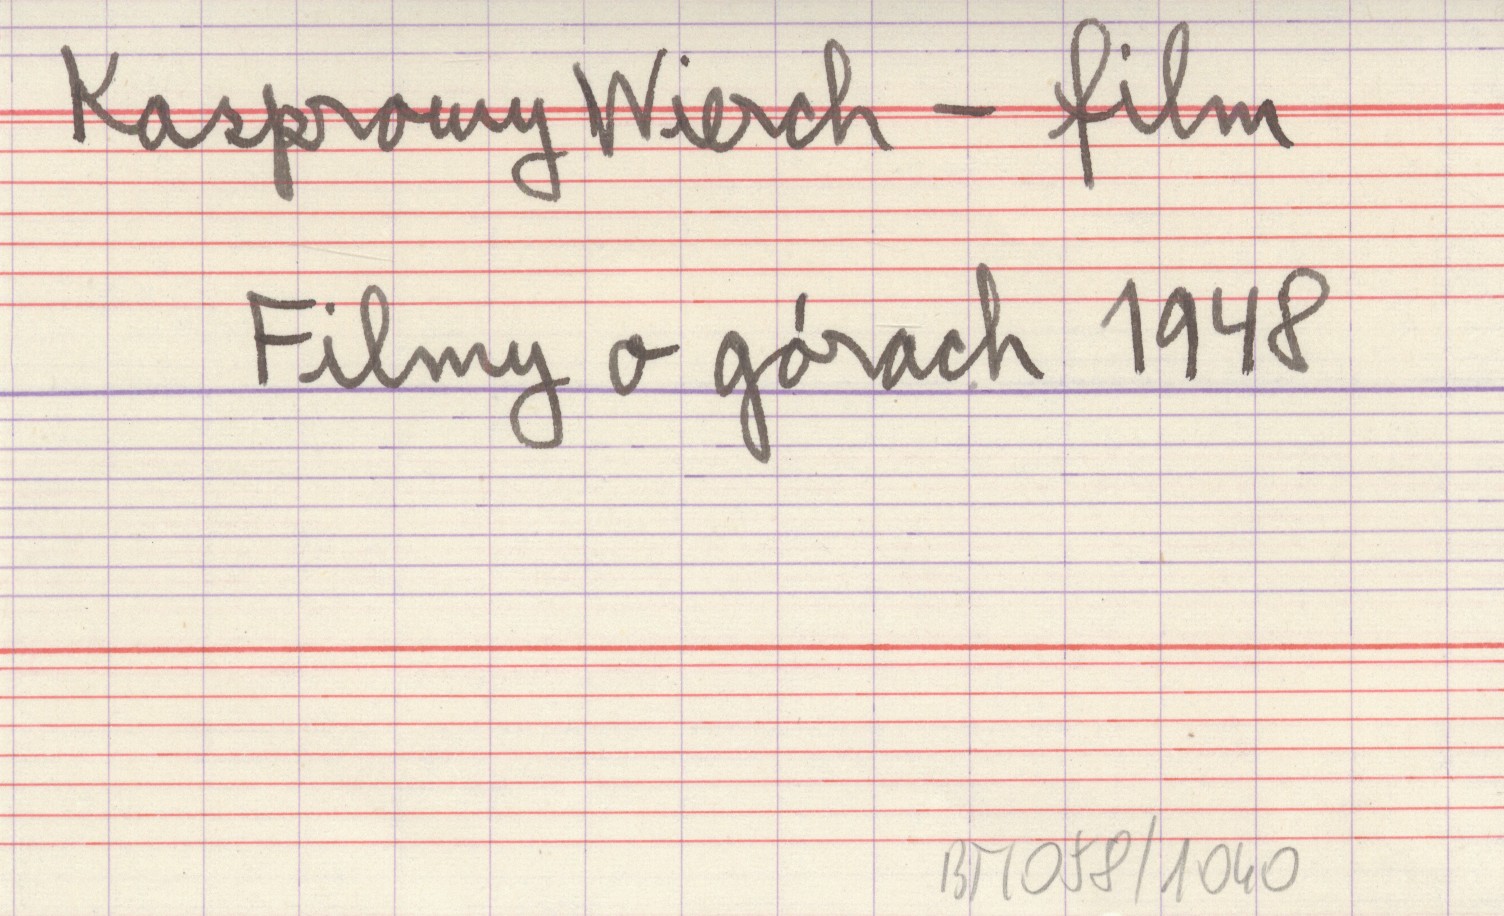 Kasprowy Wierch – film
Filmy o górach 1948
BM058/1040